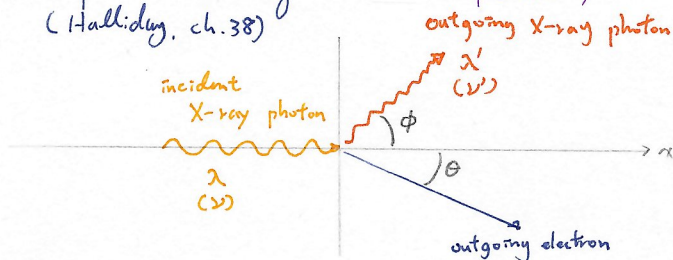 (Halliday, ch.38)
outgoing X-ray photon
λ'
(ν')
incident
X-ray photon
ϕ
x
θ
λ
(ν)
outgoing electron